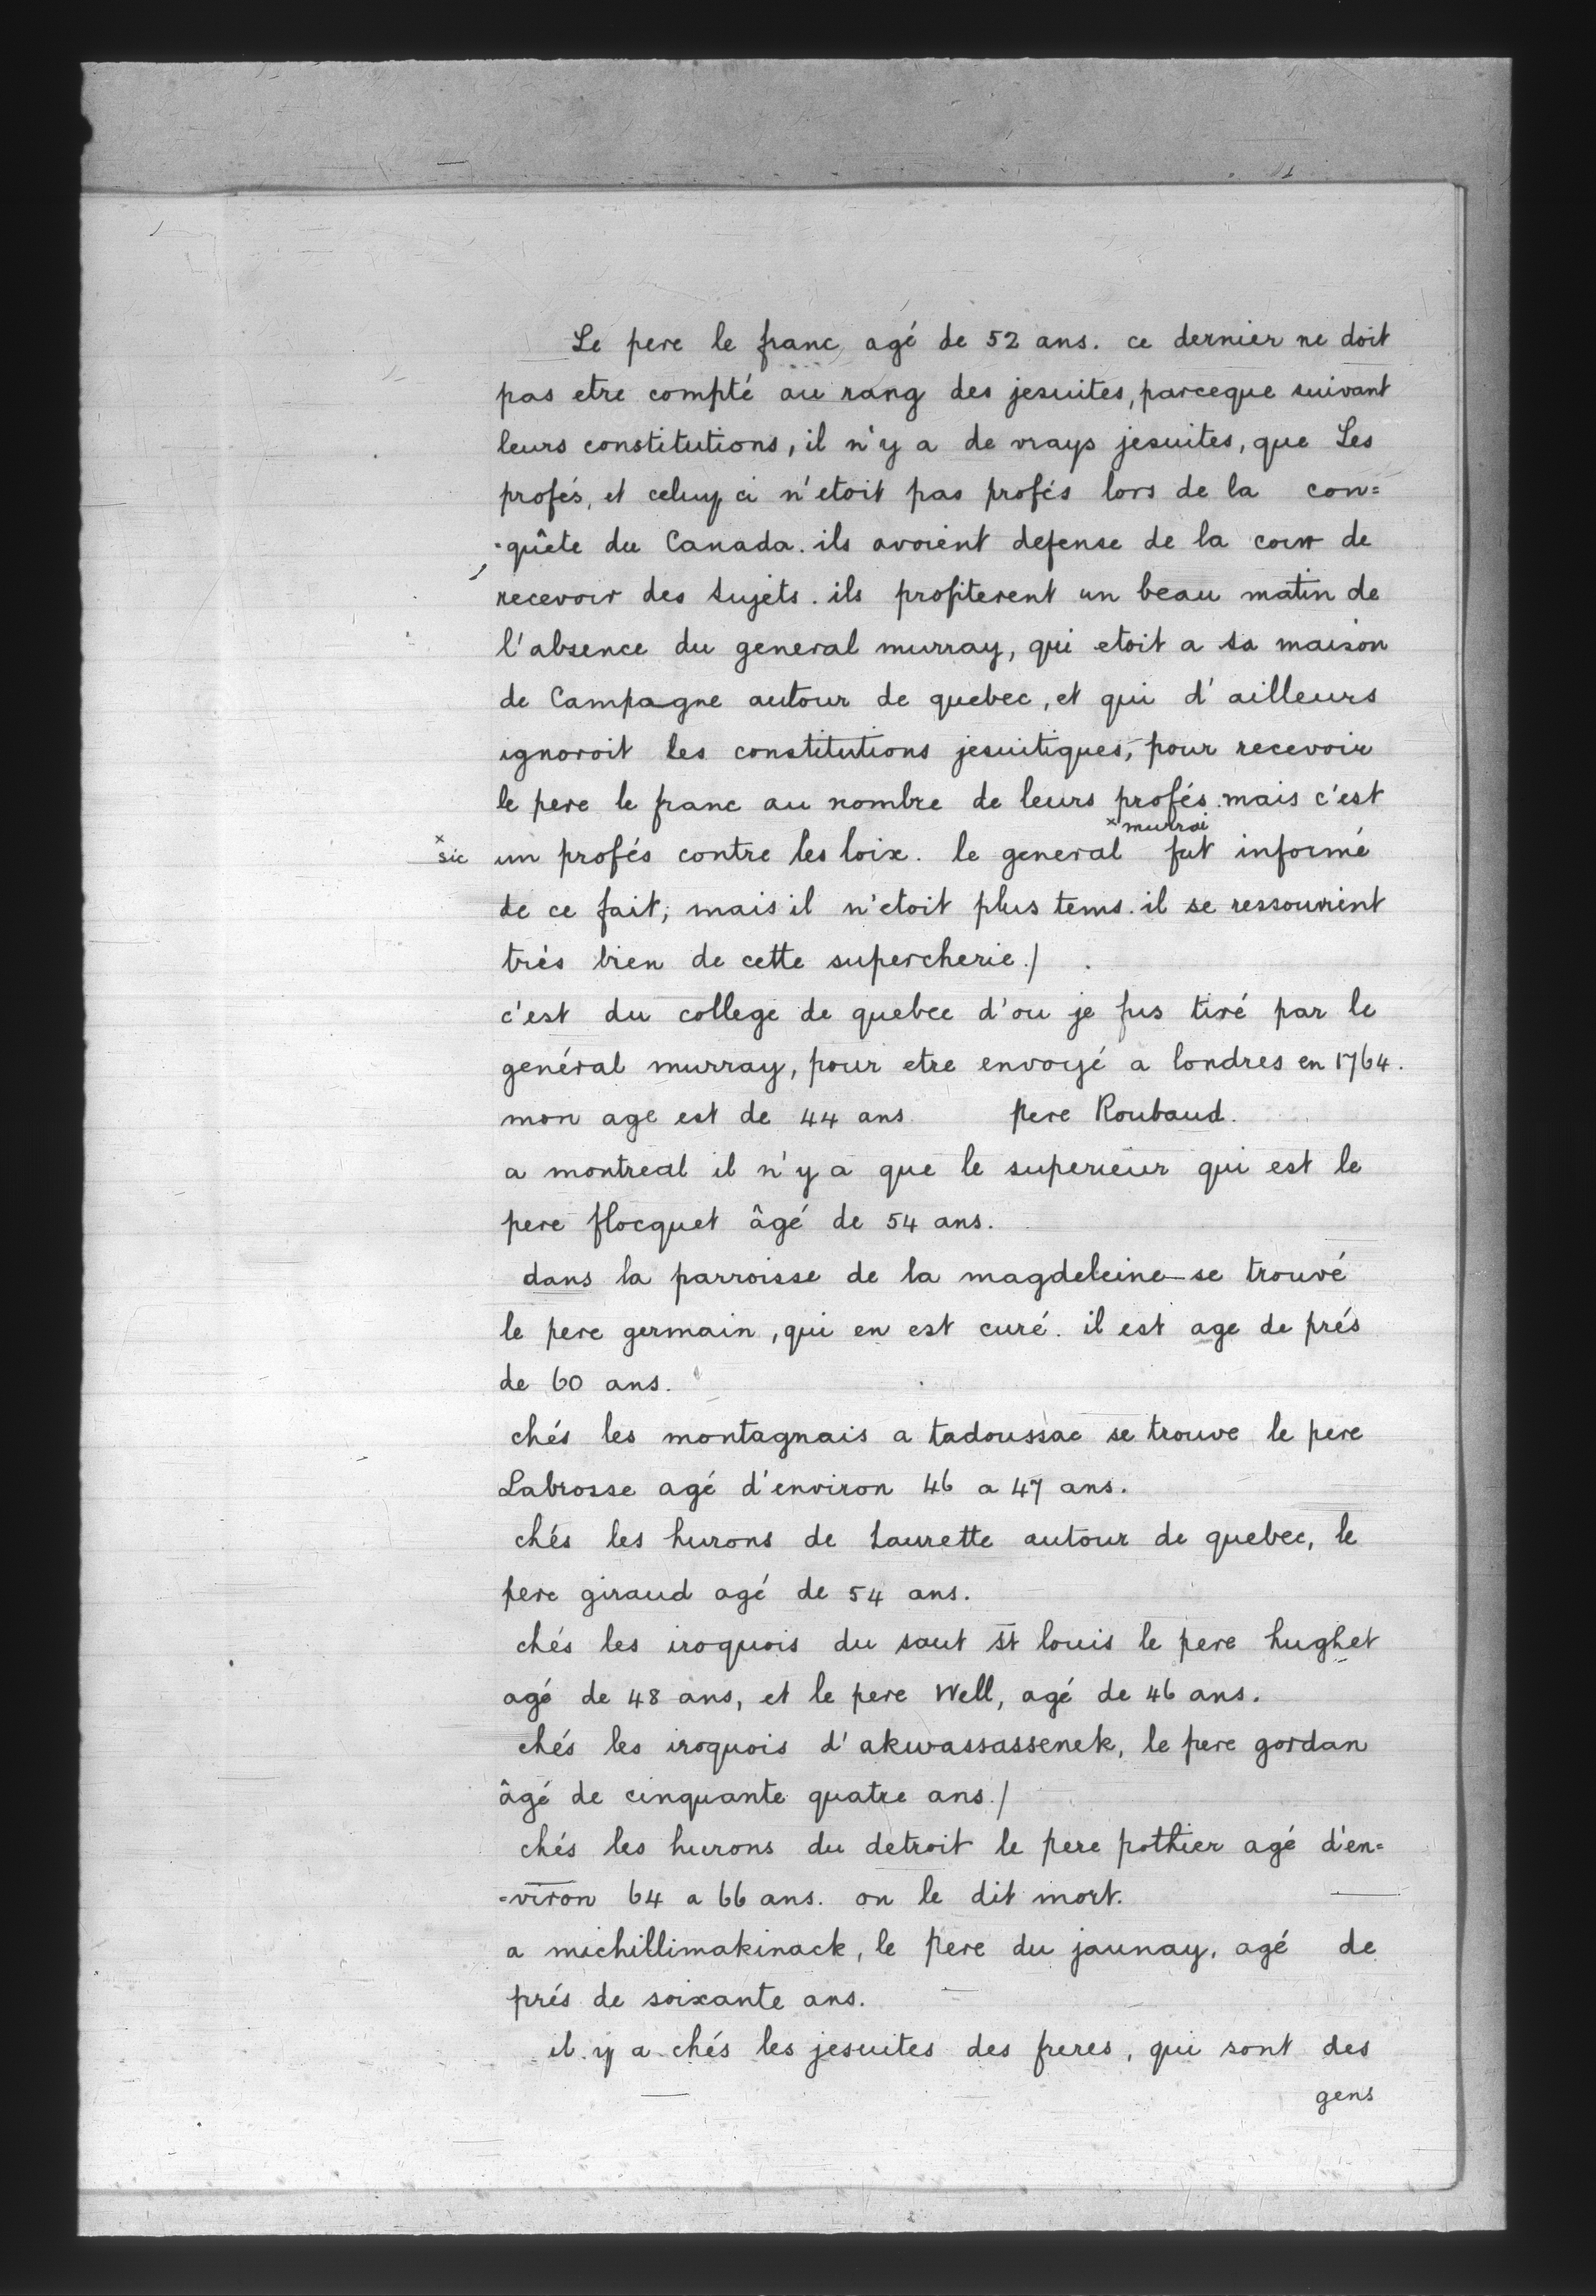 Le pere le franc agé de 52 ans. ce dernier ne doit
pas etre compté au rang des jesuites, parceque suivant
leurs constitutions, il n'y a de vrays jesuites, que Les
profés, et celuy ci n'etoit pas profés lors de la con=
=quête du Canada. ils avoient defense de la cour de
recevoir des sujets. ils profiterent un beau matin de
l'absence du general murray, qui etoit a sa maison
de Campagne autour de quebec, et qui d'ailleurs
ignoroit les constitutions jesuitiques, pour recevoir
le pere le franc au nombre de leurs profés. mais c'est
x murrai
x sic un profés contre les loix. le general fut informé
de ce fait; mais il n'etoit plus tems. il se ressouvient
trés bien de cette supercherie./
c'est du college de quebec d'ou je fus tiré par le
genéral murray, pour etre envoyé a londres en 1764.
mon age est de 44 ans. pere Roubaud.
a montreal il n'y a que le superieur qui est le
pere flocquet âgé de 54 ans.
dans la parroisse de la magdeleine se trouvé
le pere germain, qui en est curé. il est age de prés
de 60 ans.
chés les montagnais a tadoussac se trouve le pere
Labrosse agé d'environ 46 a 47 ans.
chés les hurons de Laurette autour de quebec, le
pere giraud agé de 54 ans.
chés les iroquois du saut st louis le pere hughet
agé de 48 ans, et le pere Well, agé de 46 ans.
chés les iroquois d'akwassassenek, le pere gordan
âgé de cinquante quatre ans./
chés les hurons du detroit le pere pothier agé d'en=
=viron 64 a 66 ans. on le dit mort.
a michillimakinack, le pere du jaunay, agé de
prés de soixante ans.
il y a chés les jesuites des freres, qui sont des
gens